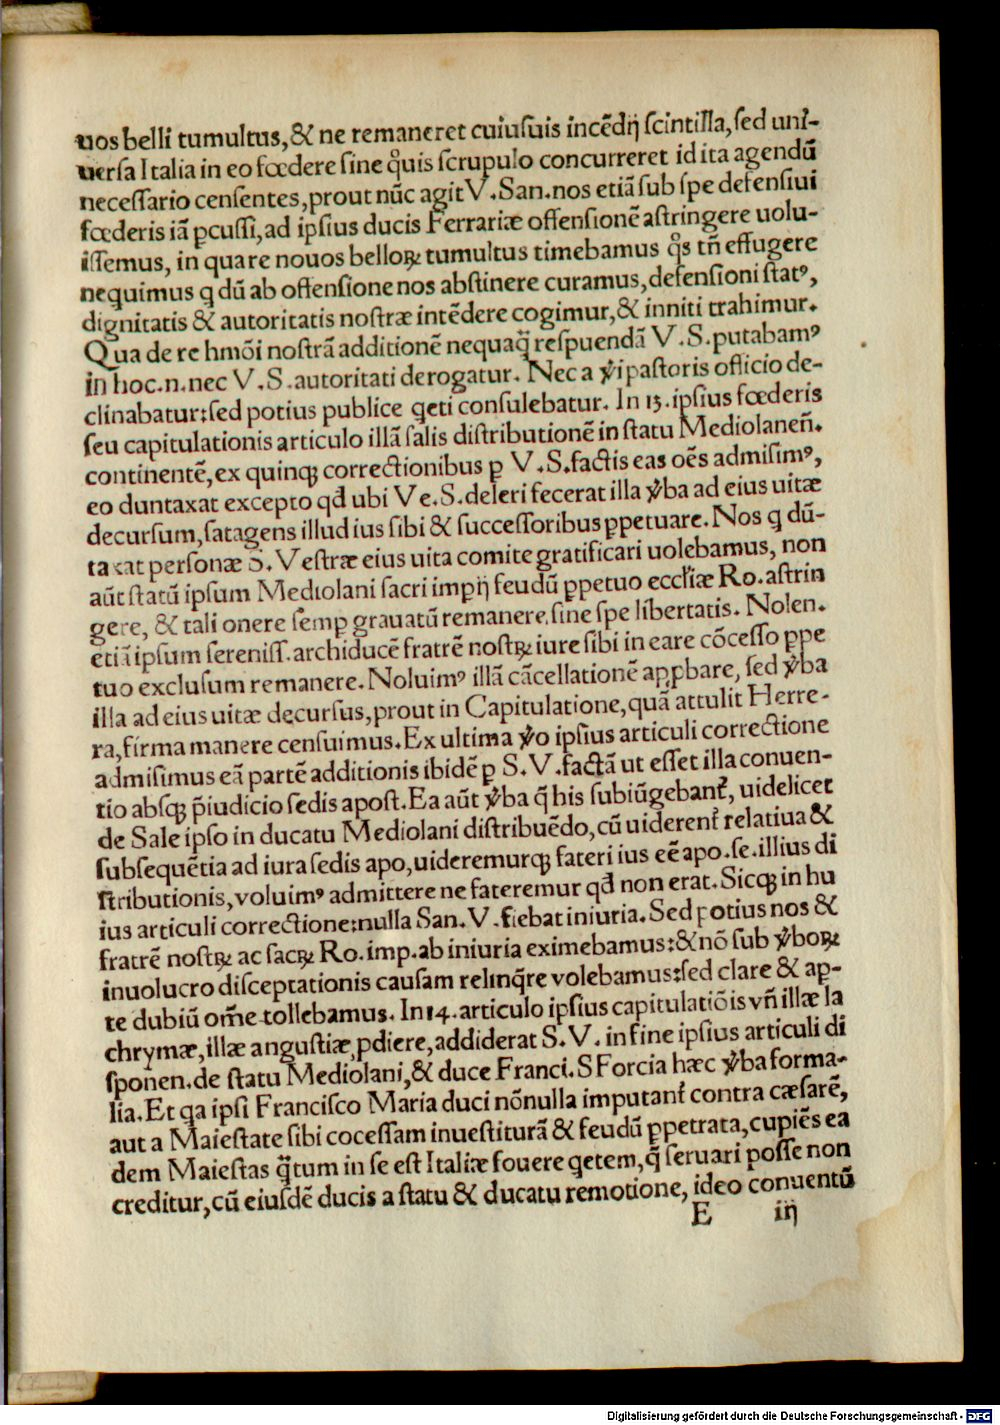 uos belli tumultus, & ne remaneret cuiusuis incẽdij scintilla, sed uni-
uersa Italia in eo fœdere sine quis scrupulo concurreret id ita agendũ
necessario censentes, prout nũc agit V. San. nos etiã sub spe defensiui
fœderis iã ꝑcussi, ad ipsius ducis Ferrariæ offensionẽ astringere uolu-
issemus, in quare nouos belloꝝ tumultus timebamus qͦs tñ effugere
nequimus q dũ ab offensione nos abstinere curamus, defensioni statꝰ,
dignitatis & autoritatis nostræ intẽdere cogimur, & inniti trahimur.
Qua de re hmõi nostrã additionẽ nequaq̃ respuendã V. S. putabamꝰ
in hoc. n. nec V. S. autoritati derogatur. Nec a ṽi pastoris officio de-
clinabatur: sed potius publice q̇eti consulebatur. In 13. ipsius fœderis
seu capitulationis articulo illã salis distributionẽ in statu Mediolaneñ.
continentẽ, ex quinqꝫ correctionibus ꝑ V. S. factis eas oẽs admisimꝰ,
eo duntaxat excepto qd̃ ubi Ve. S. deleri fecerat illa ṽba ad eius uitæ
decursum, satagens illud ius sibi & successoribus ꝑpetuare. Nos q dũ-
taxat personæ S. Vestræ eius uita comite gratificari uolebamus, non
aũt statũ ipsum Mediolani sacri impij feudũ ꝑpetuo eccƚiæ Ro. astrin
gere, & tali onere semꝑ grauatũ remanere, sine spe libertatis. Nolen.
etiã ipsum sereniss. archiducẽ fratrẽ nostꝝ iure sibi in ea re cõcesso ꝑpe
tuo exclusum remanere. Noluimꝰ illã cãcellationẽ apꝓbare, sed ṽba
illa ad eius uitæ decursus, prout in Capitulatione, quã attulit Herre-
ra, firma manere censuimus. Ex ultima ṽo ipsius articuli correctione
admisimus eã partẽ additionis ibidẽ ꝑ S. V. factã ut esset illa conuen-
tio absqꝫ p̃iudicio sedis apost. Ea aũt ṽba q̃ his subiũgebanṫ, uidelicet
de Sale ipso in ducatu Mediolani distribuẽdo, cũ uiderenṫ relatiua &
subsequẽtia ad iura sedis apo, uideremurqꝫ fateri ius eẽ apo. se. illius di
stributionis, voluimꝰ admittere ne fateremur qd̃ non erat. Sicqꝫ in hu
ius articuli correctione: nulla San. V. fiebat iniuria. Sed potius nos &
fratrẽ nostꝝ ac sacꝝ Ro. imp. ab iniuria eximebamus: & nõ sub ṽboꝝ
inuolucro disceptationis causam relinq̃re volebamus: sed clare & ap-
te dubiũ om̃e tollebamus. In 14. articulo ipsius capitulatiõis vñ illæ la
chrymæ, illæ angustiæ ꝓdiere, addiderat S. V. in fine ipsius articuli di
sponen. de statu Mediolani, & duce Franci. SForcia hæc ṽba forma-
lia. Et qa ipsi Francisco Maria duci nõnulla imputanṫ contra cæsarẽ,
aut a Maiestate sibi cocessam inuestiturã & feudũ ꝑpetrata, cupiẽs ea
dem Maiestas q̃tum in se est Italiæ fouere q̇etem, q̃ seruari posse non
creditur, cũ eiusdẽ ducis a statu & ducatu remotione, ideo conuentũ
E iij
Digitalisierung gefördert durch die Deutsche Forschungsgemeinschaft - DFG